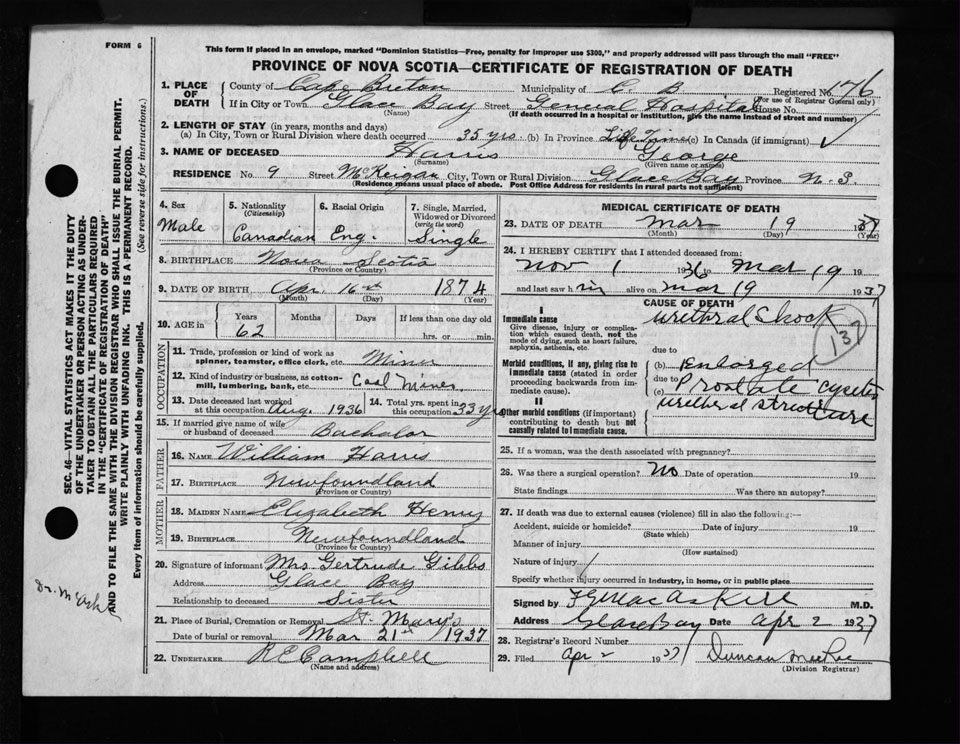 FORM 6
This form if placed in an envelope, marked "Dominion Statistics—Free, penalty for improper use $300," and properly addressed will pass through the mail "FREE"
PROVINCE OF NOVA SCOTIA—CERTIFICATE OF REGISTRATION OF DEATH
1. PLACE OF DEATH County of Cape Breton Municipality of C. B. Registered No. 176
(For use of Registrar General only)
If in City or Town Glace Bay Street General Hospital House No.
(Name) (If death occurred in a hospital or institution, give the name instead of street and number)
2. LENGTH OF STAY (in years, months and days)
(a) In City, Town or Rural Division where death occurred 35 yrs. (b) In Province Life Time (c) in Canada (if immigrant)
3. NAME OF DECEASED Harris George
(Surname) (Given name or names)
RESIDENCE No. 9 Street McKeigan City, Town or Rural Division Glace Bay Province N. S.
(Residence means usual place of abode. Post Office Address for residents in rural parts not sufficient)
4. Sex Male
5. Nationality (Citizenship) Canadian
6. Racial Origin Eng.
7. Single, Married, Widowed or Divorced (write the word) Single
8. BIRTHPLACE Nova Scotia
(Province or Country)
9. DATE OF BIRTH Apr. 16th 1874
(Month) (Day) (Year)
10. AGE in Years Months Days If less than one day old
62 hrs. or min.
OCCUPATION
11. Trade, profession or kind of work as spinner, teamster, office clerk, etc. Miner
12. Kind of industry or business, as cotton-mill, lumbering, bank, etc. Coal Mines
13. Date deceased last worked at this occupation Aug. 1936
14. Total yrs. spent in this occupation 33 yrs
15. If married give name of wife or husband of deceased Bachelor
FATHER
16. NAME William Harris
17. BIRTHPLACE Newfoundland
(Province or Country)
MOTHER
18. MAIDEN NAME Elizabeth Henny
19. BIRTHPLACE Newfoundland
(Province or Country)
20. Signature of informant Mrs Gertrude Gibbs
Address Glace Bay
Relationship to deceased Sister
21. Place of Burial, Cremation or Removal St. Mary's
Date of burial or removal Mar 21st 1937
22. UNDERTAKER R E Campbell
(Name and address)
MEDICAL CERTIFICATE OF DEATH
23. DATE OF DEATH Mar 19 1937
(Month) (Day) (Year)
24. I HEREBY CERTIFY that I attended deceased from:
Nov 1 1936 to Mar 19 19
and last saw him alive on Mar 19 1937
CAUSE OF DEATH
I
Immediate cause urethral Shock
137
Give disease, injury or complication which caused death, not the mode of dying, such as heart failure, asphyxia, asthenia, etc.
due to
Morbid conditions, if any, giving rise to immediate cause (stated in order proceeding backwards from immediate cause).
(b) Enlarged
due to
(c) Prostate
urethral stricture
II
Other morbid conditions (if important) contributing to death but not causally related to immediate cause.
25. If a woman, was the death associated with pregnancy?
26. Was there a surgical operation? No Date of operation 19
State findings Was there an autopsy?
27. If death was due to external causes (violence) fill in also the following:—
Accident, suicide or homicide? Date of injury 19
(State which)
Manner of injury
(How sustained)
Nature of injury
Specify whether injury occurred in industry, in home, or in public place
Signed by M.D.
Address Glace Bay Date Apr 2 1937
28. Registrar's Record Number
29. Filed Apr 2 1937 Duncan
(Division Registrar)
SEC. 46—VITAL STATISTICS ACT MAKES IT THE DUTY OF THE UNDERTAKER OR PERSON ACTING AS UNDERTAKER TO OBTAIN ALL THE PARTICULARS REQUIRED IN THE "CERTIFICATE OF REGISTRATION OF DEATH" AND TO FILE THE SAME WITH THE DIVISION REGISTRAR WHO SHALL ISSUE THE BURIAL PERMIT.
WRITE PLAINLY WITH UNFADING INK. THIS IS A PERMANENT RECORD.
Every item of information should be carefully supplied. (See reverse side for instructions.)